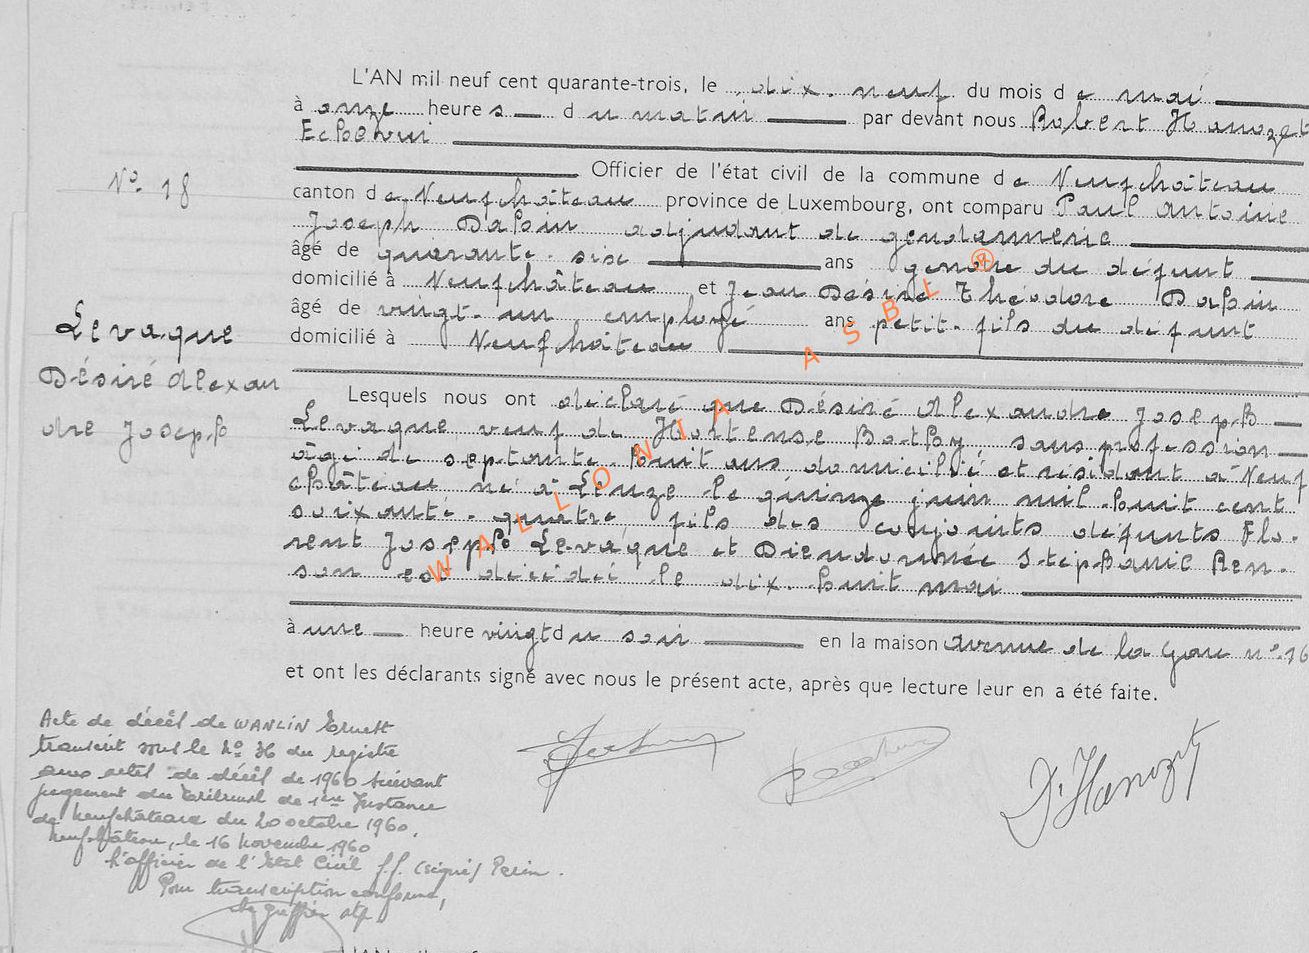 L'AN mil neuf cent quarante-trois, le dix-neuf du mois de mai
à onze heures du matin par devant nous Robert Hanozet
Echevin
Officier de l'état civil de la commune de Neufchâteau
N° 18
canton de Neufchâteau province de Luxembourg, ont comparu Paul Antoine
Joseph Dabin adjudant de gendarmerie
âgé de quarante-six ans gendre du défunt
domicilié à Neufchâteau et Jean Désiré Théodore Dabin
âgé de vingt-un employé ans petit-fils du défunt
domicilié à Neufchâteau
Levaque
Désiré Alexan
dre Joseph
Lesquels nous ont déclaré que Désiré Alexandre Joseph
Levaque veuf de Hortense Bothy sans profession
âgé de septante-huit ans domicilié et résidant à Neuf
château né à Leuze le quinze juin mil huit cent
soixante-quatre, fils des conjoints défunts Flo-
rent Joseph Levaque et Dieudonnée Stéphanie Ren-
son est décédé le dix-huit mai
à une heure vingt du soir en la maison avenue de la Gare n° 16
et ont les déclarants signé avec nous le présent acte, après que lecture leur en a été faite.
WALLONIA ASBL ®
Acte de décès de WANLIN Ernest
transcrit sous le N° 36 du registre
aux actes de décès de 1960 suivant
jugement du Tribunal de 1ère Instance
de Neufchâteau du 20 octobre 1960.
Neufchâteau, le 16 novembre 1960
L'officier de l'Etat Civil ff. (signé) Perin.
Pour transcription conforme,
Le greffier
Dr Hanozet
L'AN